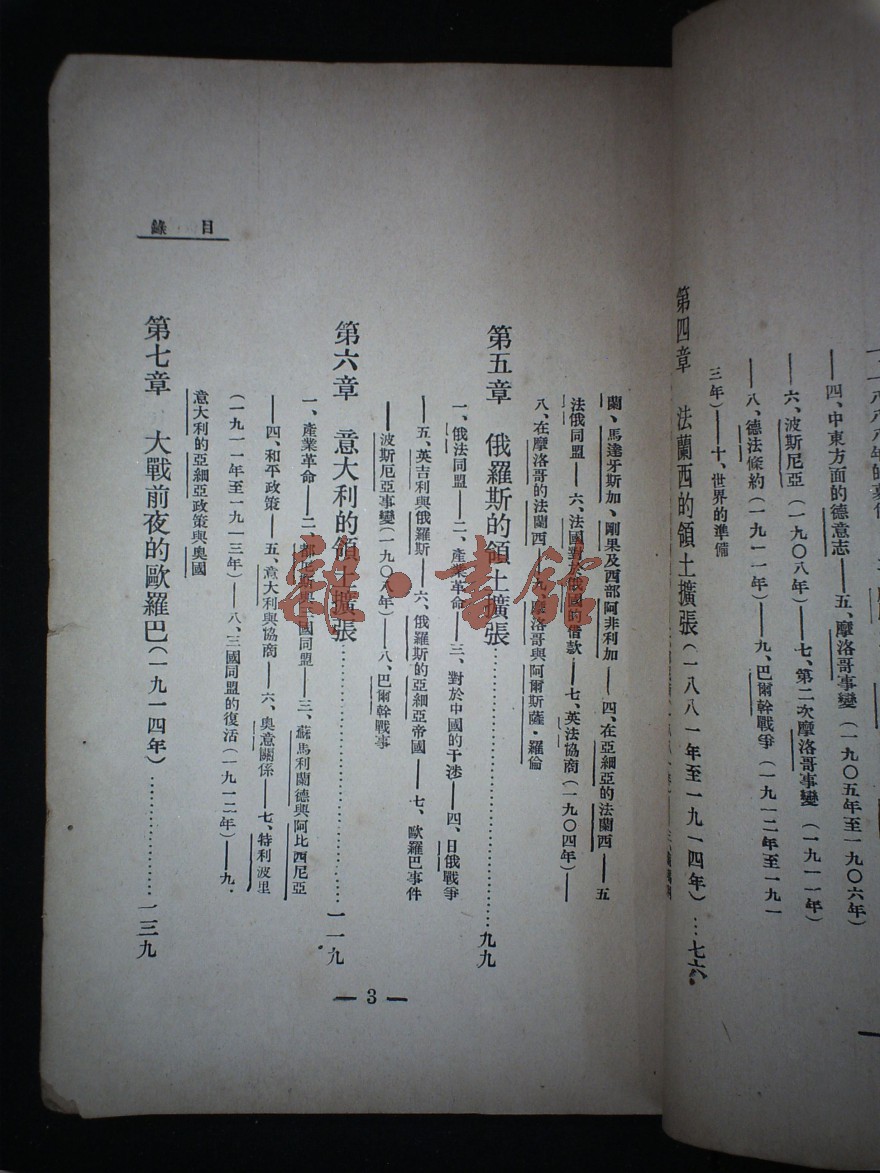 四、中東方面的德意志——五、摩洛哥事變(一九〇五年至一九〇六年)
——六、波斯尼亞(一九〇八年)——七、第二次摩洛哥事變(一九一一年)
——八、德法條約(一九一一年)——九、巴爾幹戰爭(一九一二年至一九一
三年)——十、世界的準備
第四章 法蘭西的領土擴張(一八八一年至一九一四年)…七六
目錄
蘭、馬達牙斯加、剛果及西部阿非利加——四、在亞細亞的法蘭西——五
法俄同盟——六、法國對於俄國的借款——七、英法協商(一九〇四年)——
八、在摩洛哥的法蘭西——九、摩洛哥與阿爾斯薩·羅倫
第五章 俄羅斯的領土擴張……九九
一、俄法同盟——二、產業革命——三、對於中國的干涉——四、日俄戰爭
——五、英吉利與俄羅斯——六、俄羅斯的亞細亞帝國——七、歐羅巴事件
——波斯厄亞事變(一九〇八年)——八、巴爾幹戰事
第六章 意大利的領土擴張……一一九
一、產業革命——二、三國同盟——三、蘇馬利蘭德與阿比西尼亞
——四、和平政策——五、意大利與協商——六、奧意關係——七、特利波里
(一九一一年至一九一三年)——八、三國同盟的復活(一九一二年)——九、
意大利的亞細亞政策與奧國
第七章 大戰前夜的歐羅巴(一九一四年)……一三九
— 3 —
書館